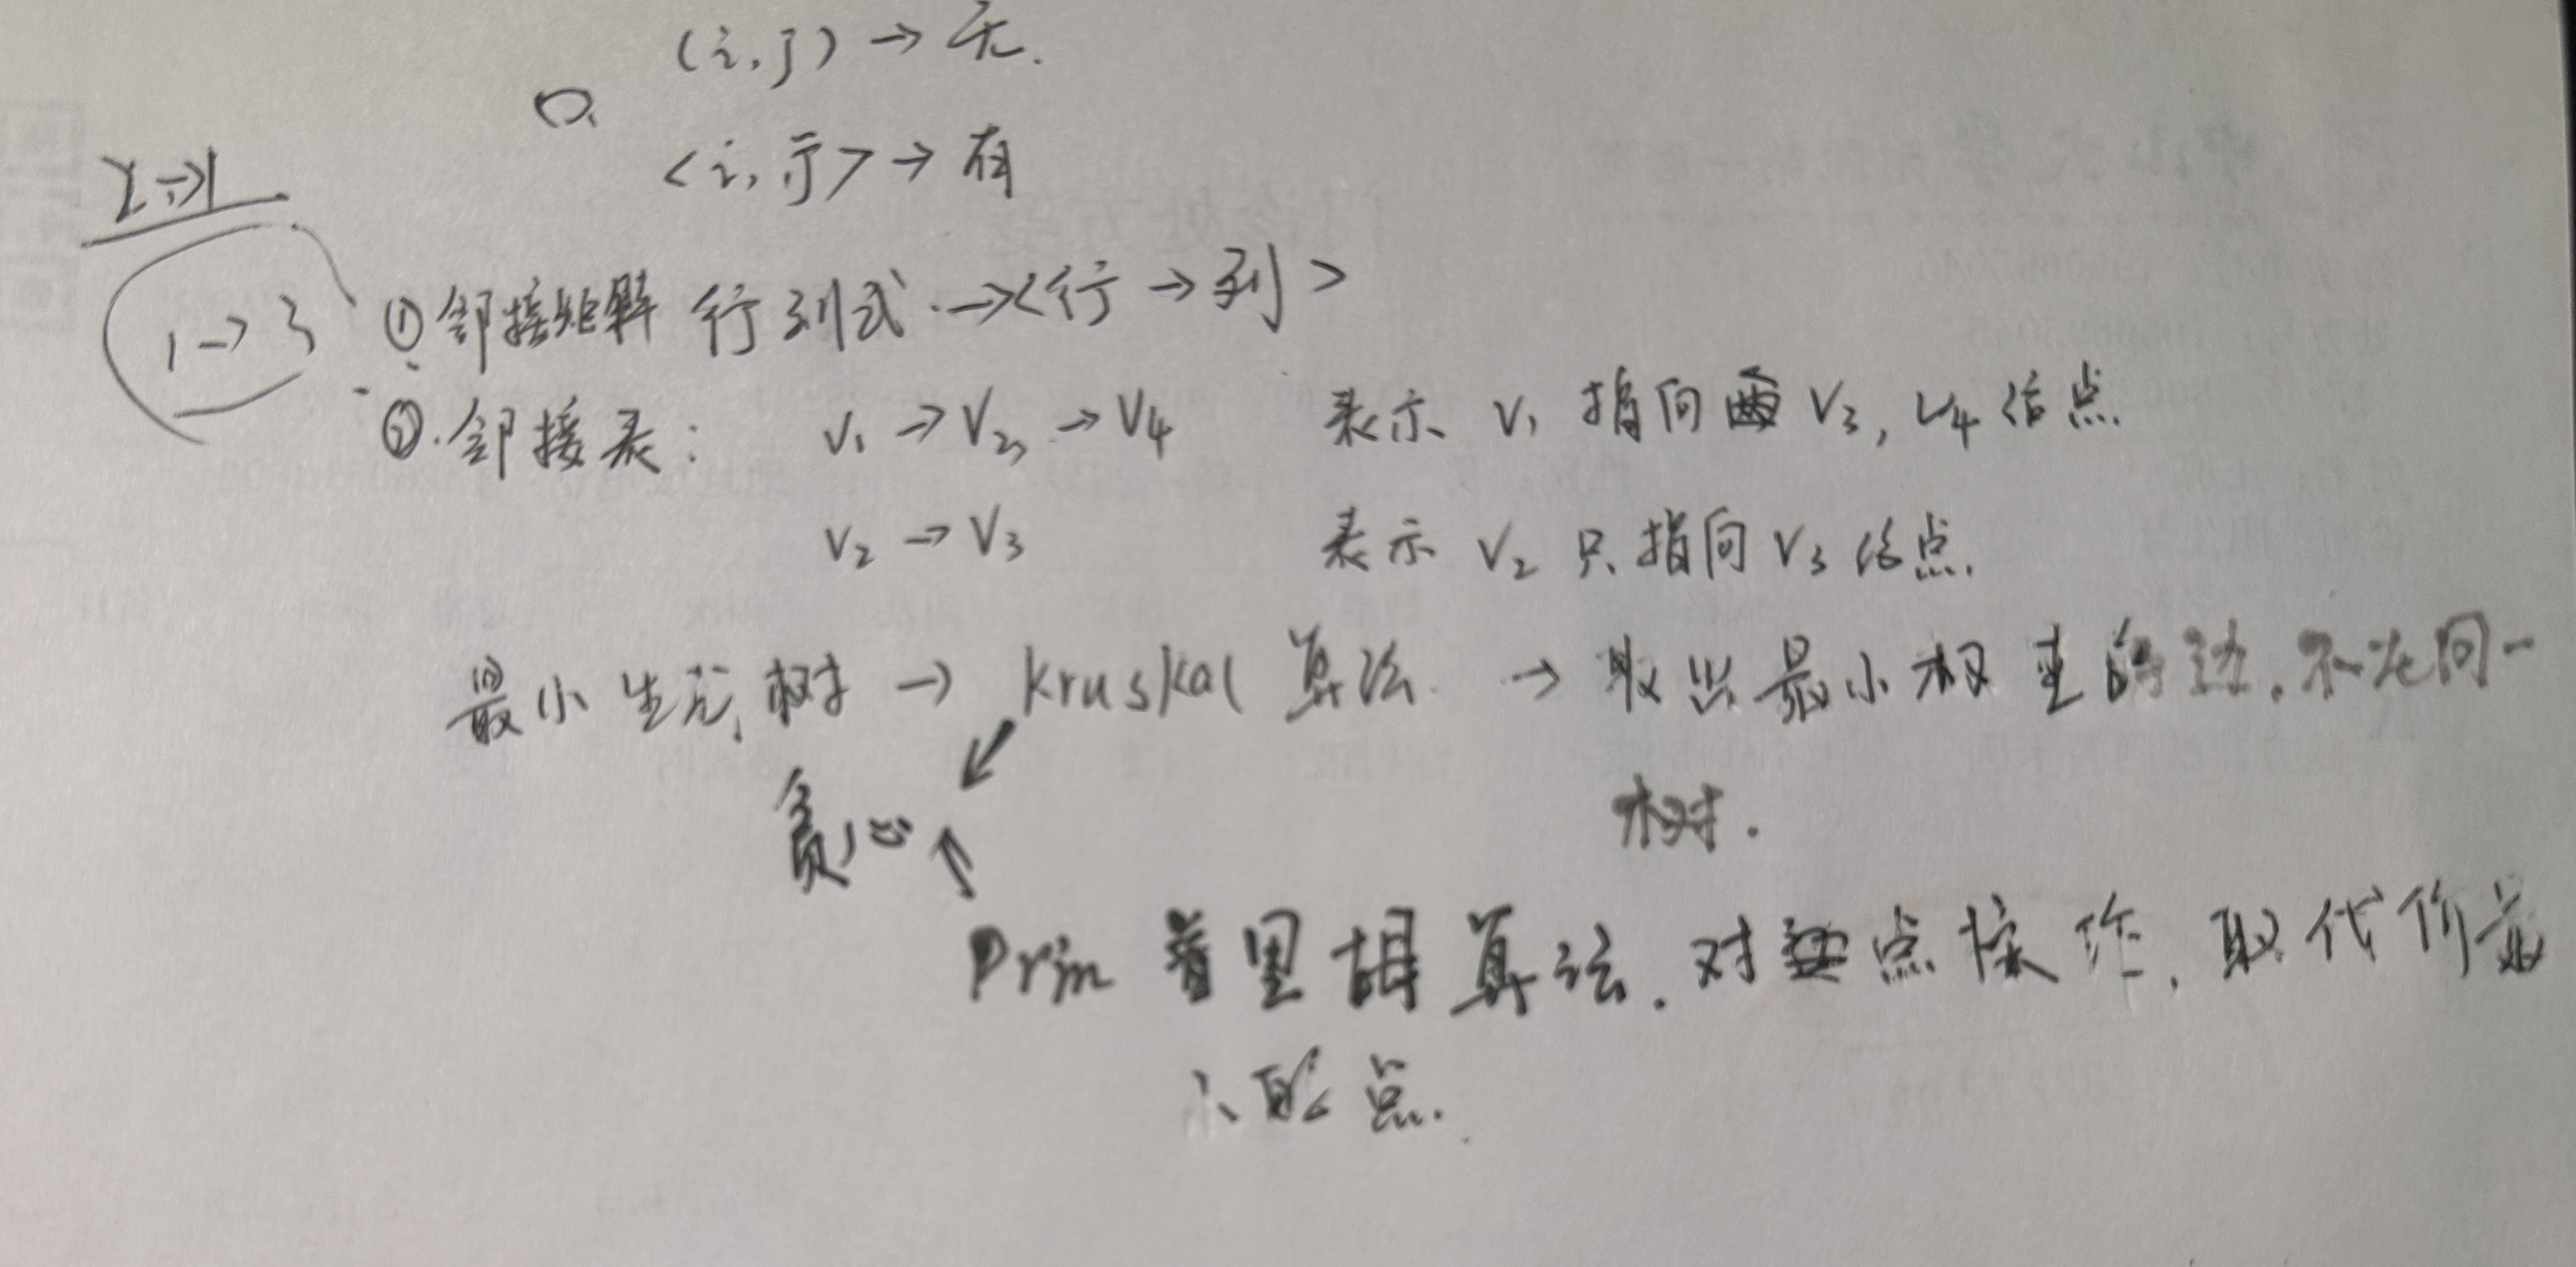 (i,j) → 无.
<i,j> → 有
1 → 3
① 邻接矩阵 行列式 → <行 → 列>
②. 邻接表: V1 → V3 → V4 表示 V1 指向 V3, V4 结点.
V2 → V3 表示 V2 只指向 V3 结点.
最小生成树 → kruskal 算法. → 取出最小权重的边. 不在同一
树.
贪心
Prim 普里姆算法. 对 点操作. 取代价最
小的点.